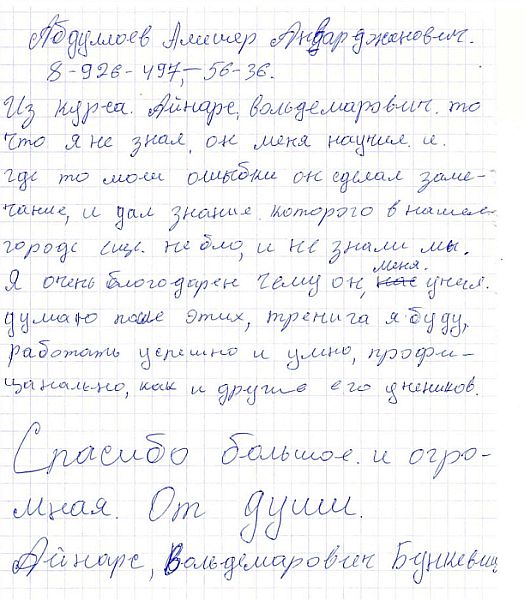 Абдуллоев Алишер Анварджанович.
8-926-497,-56-36.
Из курса. Айнарс, вольдемарович. то
что я не знал, он меня научил. и.
где то мои ошыбки он сделал заме-
чание, и дал знание которого в нашем
городе еще. небло, и не знали мы.
Я очень благодарен чему он, меня. учил.
думаю после этих, тренига я буду,
работать успешно и умно, профи-
цанально, как и другие его учеников.
Спасибо большое. и огро-
мная. От души.
Айнарс, Вольдемарович Бункевич